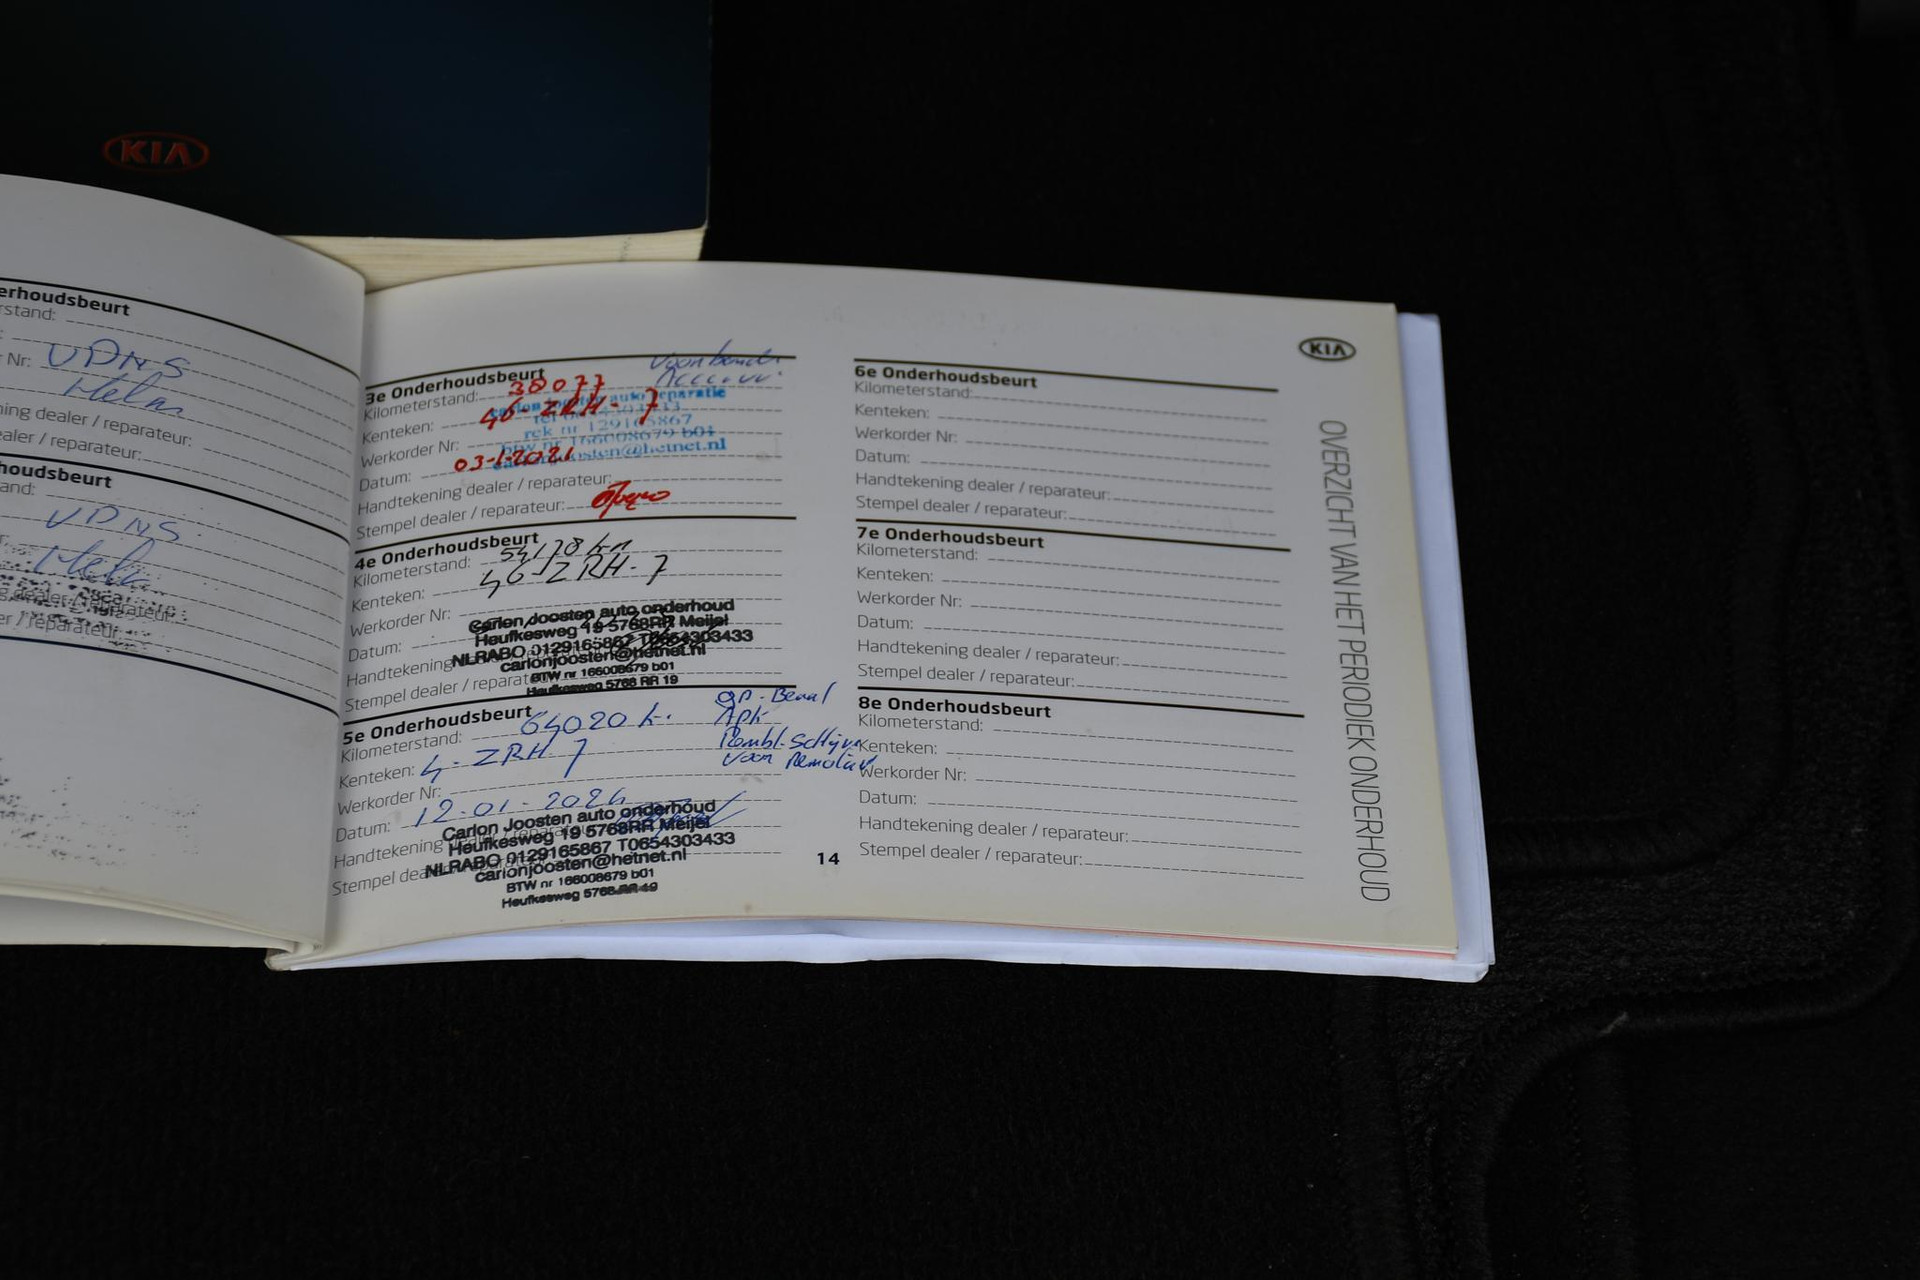 KIA
erhoudsbeurt
rstand:
r Nr: VDNS
Helm
ning dealer / reparateur:
ealer / reparateur:
houdsbeurt
and:
VDNS
Helm
er / reparateur:
3e Onderhoudsbeurt
Kilometerstand: 38077
Kenteken: 46-ZRH-7
Werkorder Nr:
rek nr 129165867
btw nr 166008679 b01
carlonjoosten@hetnet.nl
Datum: 03-1-2021
Handtekening dealer / reparateur:
Stempel dealer / reparateur:
4e Onderhoudsbeurt
Kilometerstand: 54178 km
Kenteken: 46-ZRH-7
Werkorder Nr:
Datum:
Handtekening
Stempel dealer / reparat
Carlon Joosten auto onderhoud
Heufkesweg 19 5768RR Meijel
NLRABO 0129165867 T0654303433
carlonjoosten@hetnet.nl
BTW nr 166008679 b01
Heufkesweg 5768 RR 19
5e Onderhoudsbeurt
Kilometerstand: 64020 k.
Kenteken: 4-ZRH 7
Werkorder Nr:
Datum: 12-01-2024
Handtekening
Stempel dea
APK
voor
Carlon Joosten auto onderhoud
Heufkesweg 19 5768RR Meijel
NLRABO 0129165867 T0654303433
carlonjoosten@hetnet.nl
BTW nr 166008679 b01
Heufkesweg 5768 RR 19
14
KIA
6e Onderhoudsbeurt
Kilometerstand:
Kenteken:
Werkorder Nr:
Datum:
Handtekening dealer / reparateur:
Stempel dealer / reparateur:
7e Onderhoudsbeurt
Kilometerstand:
Kenteken:
Werkorder Nr:
Datum:
Handtekening dealer / reparateur:
Stempel dealer / reparateur:
8e Onderhoudsbeurt
Kilometerstand:
Kenteken:
Werkorder Nr:
Datum:
Handtekening dealer / reparateur:
Stempel dealer / reparateur:
OVERZICHT VAN HET PERIODIEK ONDERHOUD